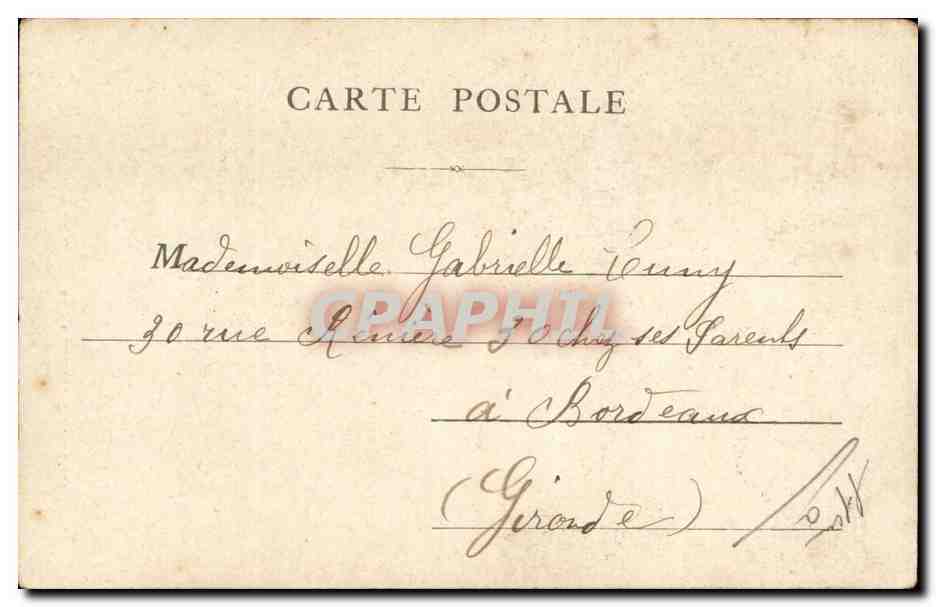 CARTE POSTALE
Mademoiselle Gabrielle
30 rue 30 chez ses Parents
à Bordeaux
(Gironde)
CPAPHIL